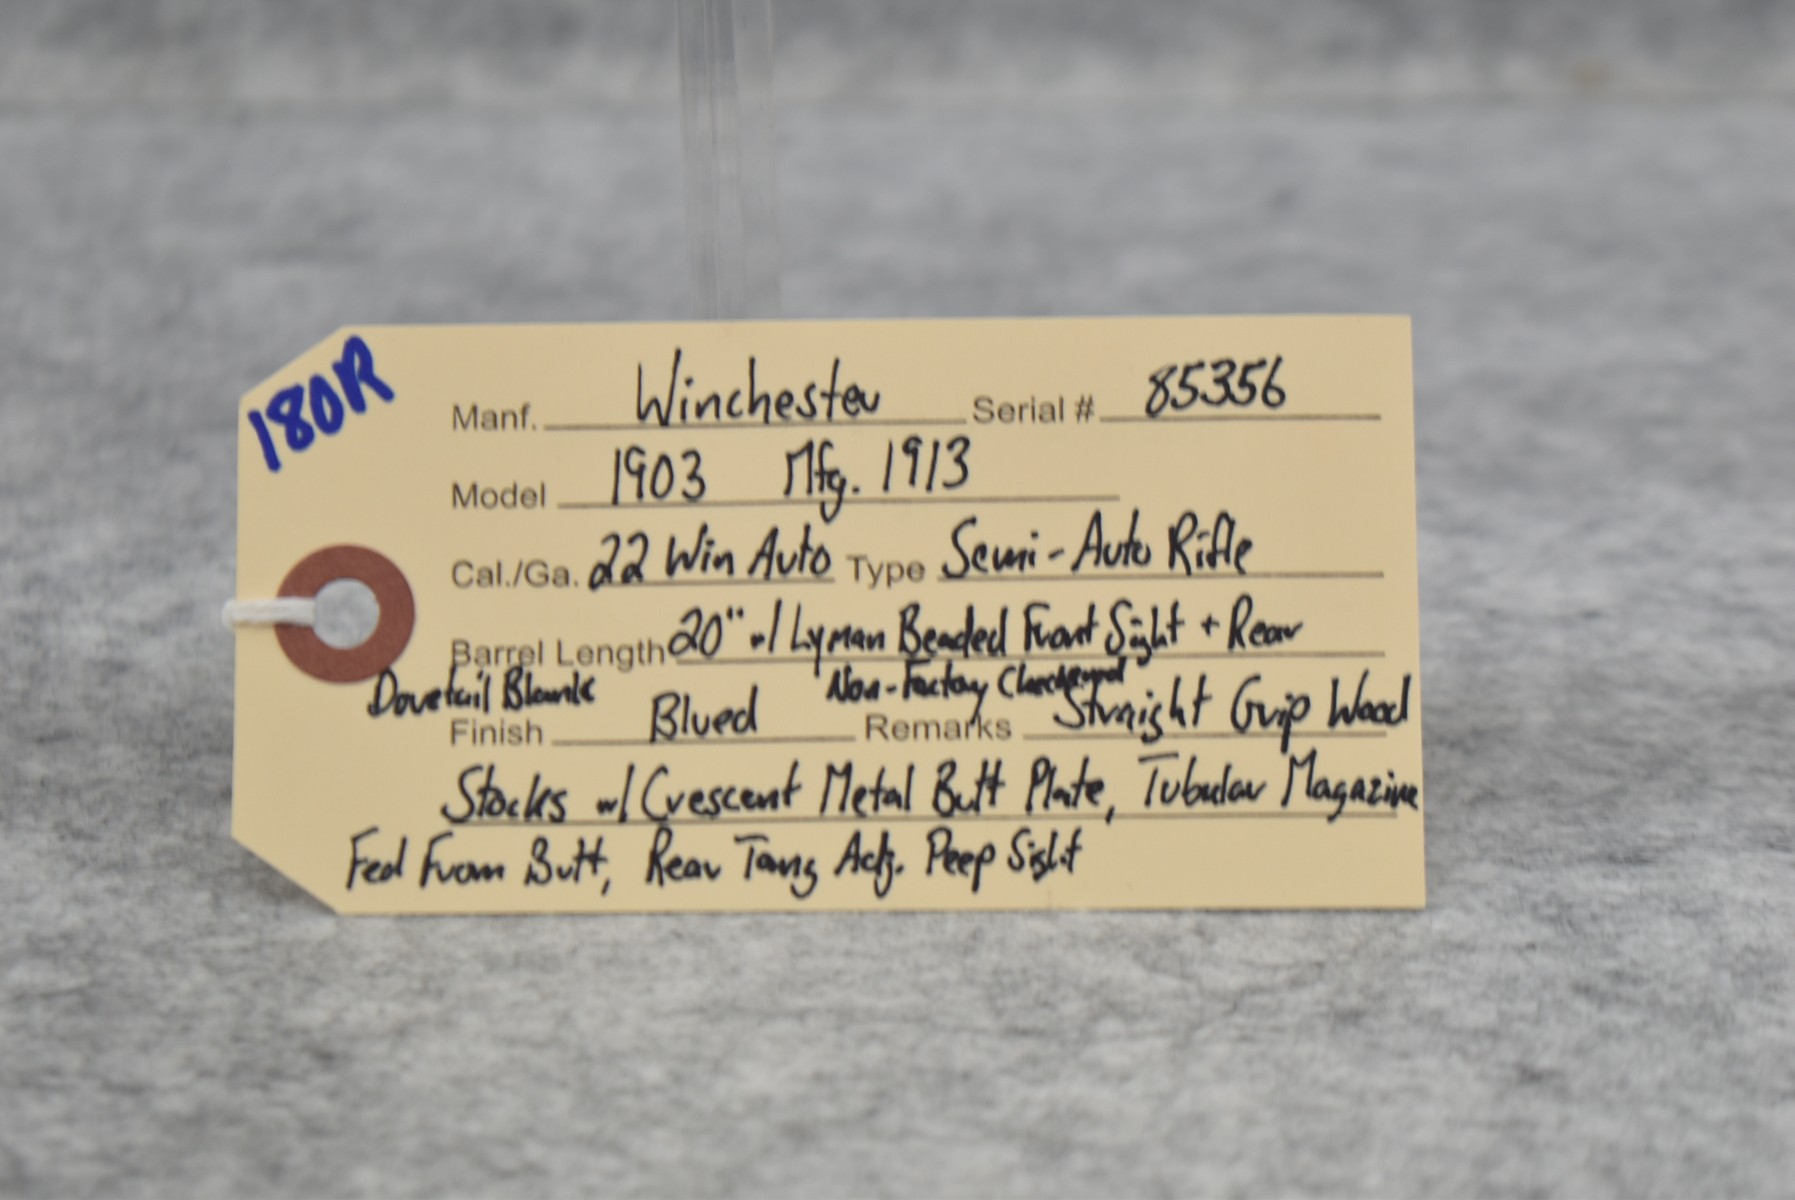 180R
Manf. Winchester Serial # 85356
Model 1903 Mfg. 1913
Cal./Ga. 22 Win Auto Type Semi-Auto Rifle
Barrel Length 20" w/ Lyman Beaded Front Sight + Rear
Dovetail Blank Non-Factory Checkered
Finish Blued Remarks Straight Grip Wood
Stocks w/ Crescent Metal Butt Plate, Tubular Magazine
Fed From Butt, Rear Tang Adj. Peep Sight